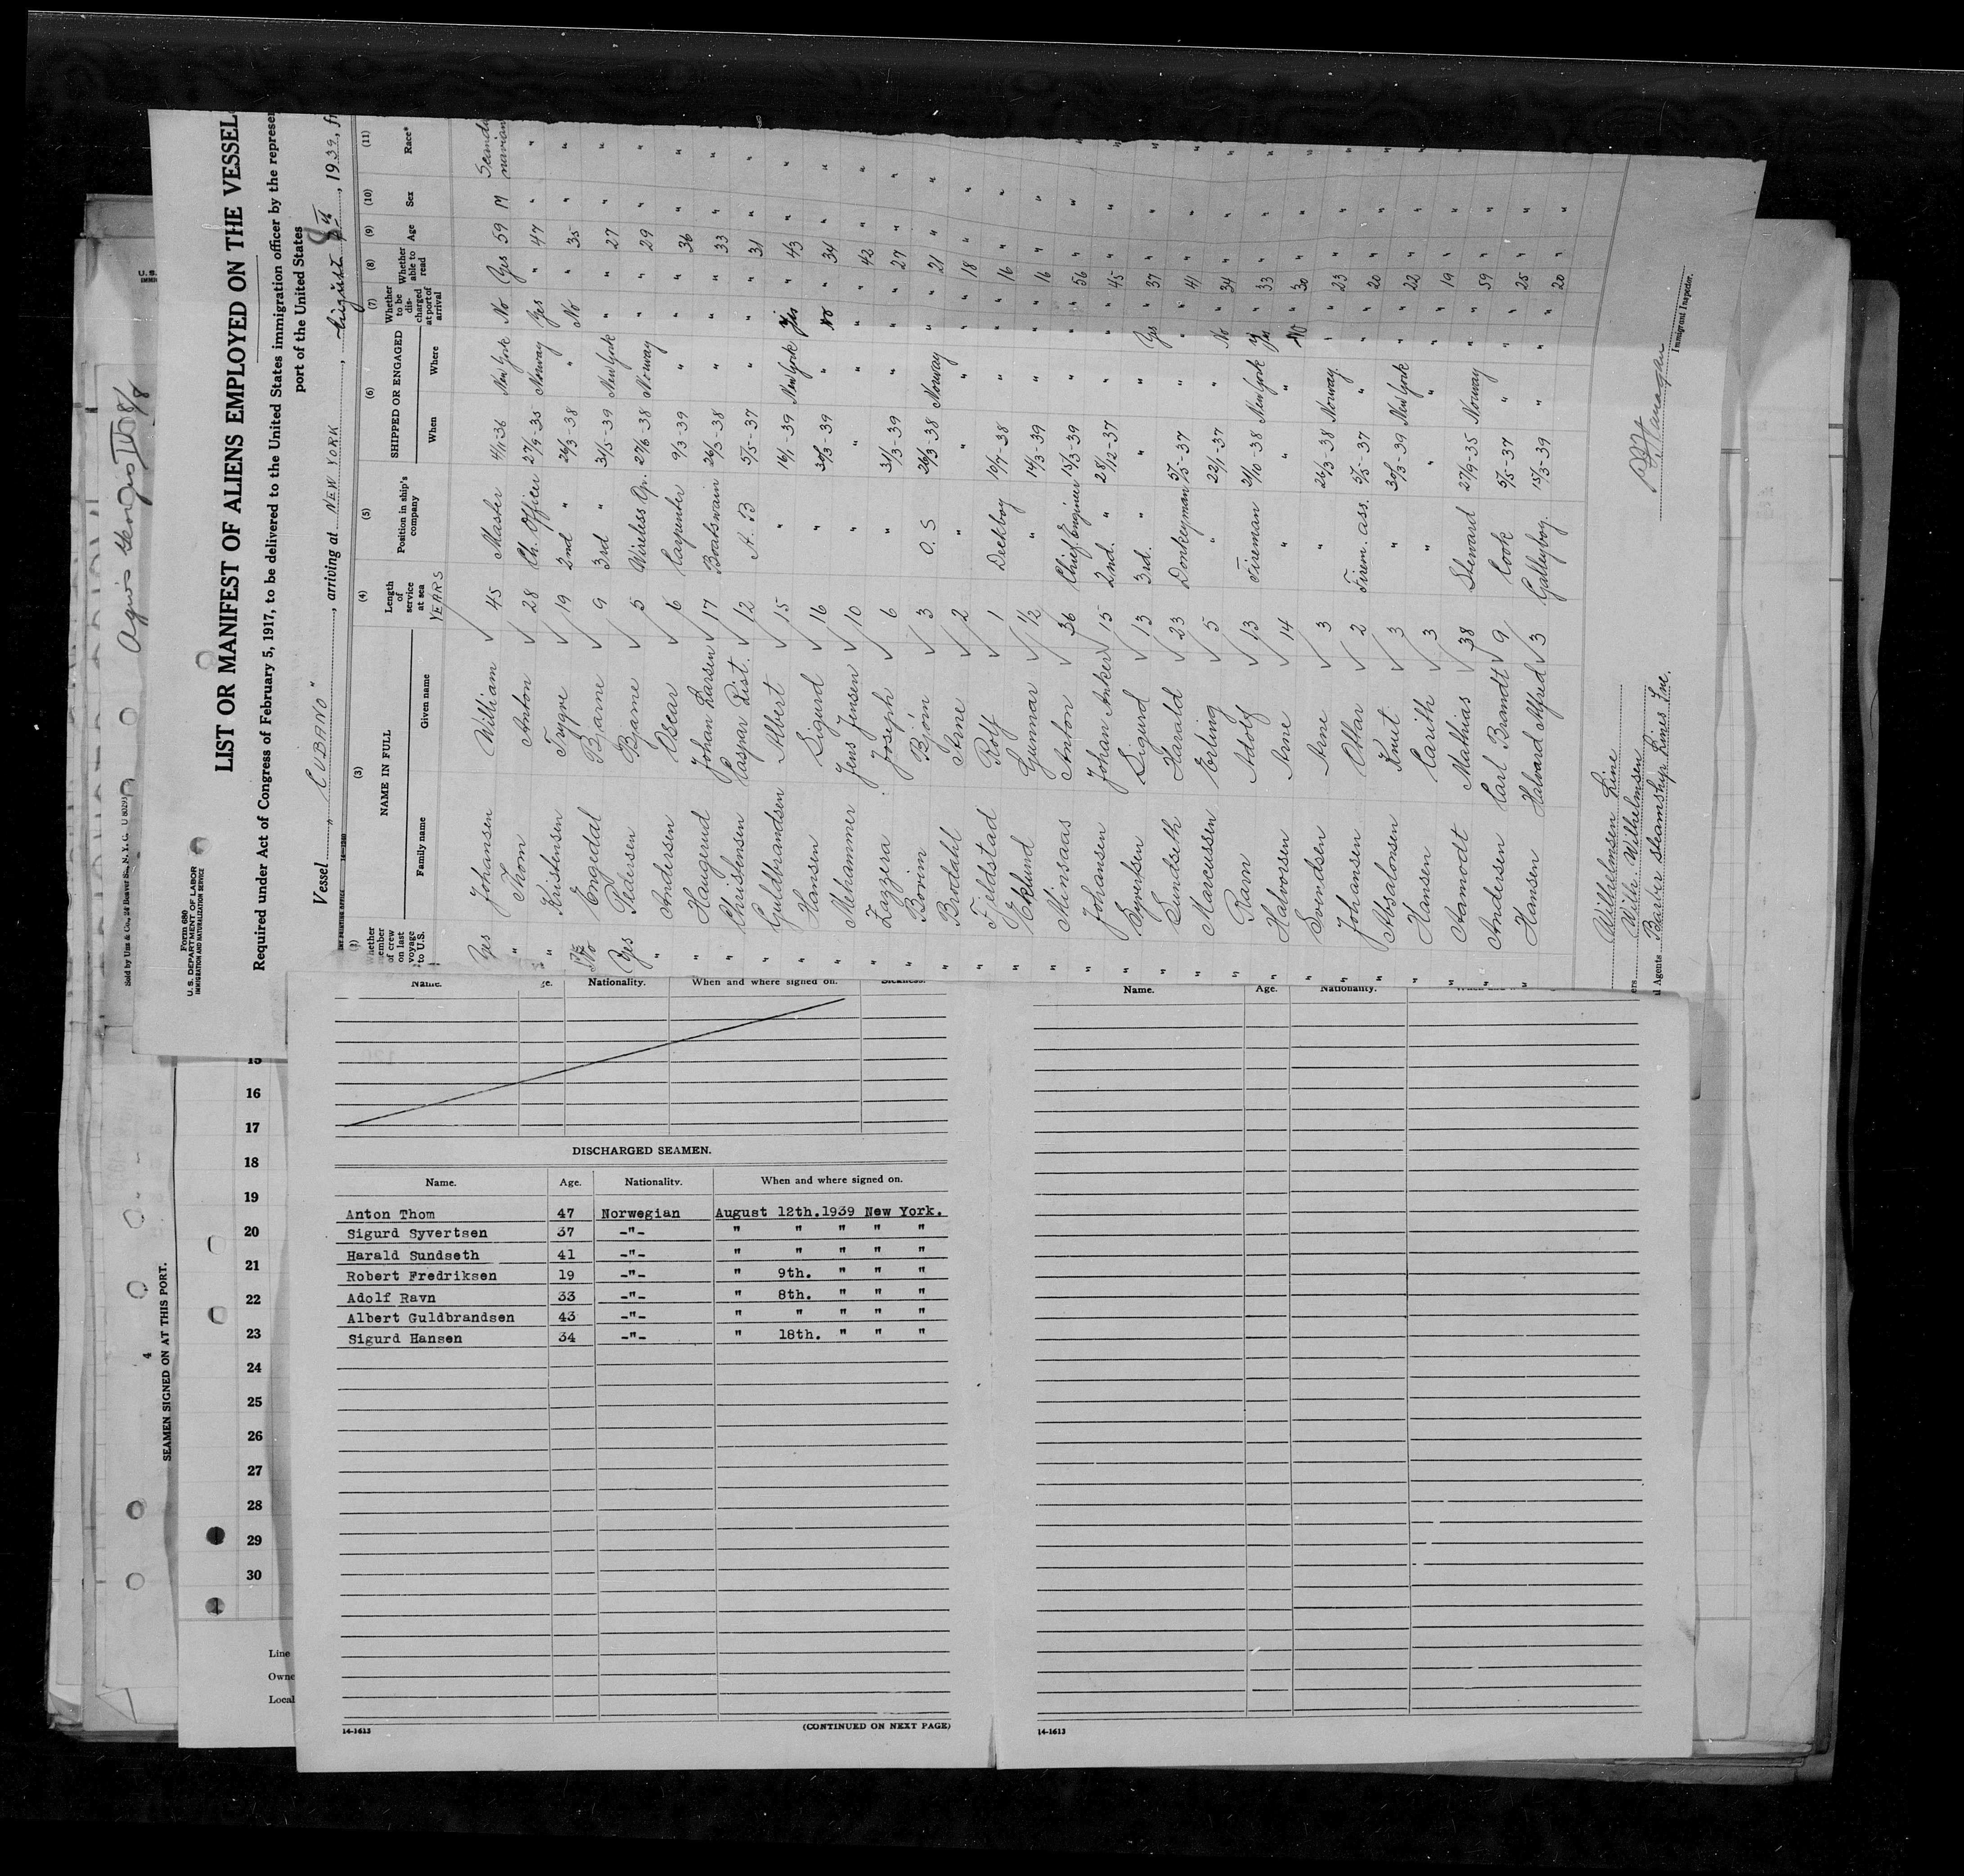 LIST OR MANIFEST OF ALIENS EMPLOYED ON THE VESSEL
Required under Act of Congress of February 5, 1917, to be delivered to the United States immigration officer by the represen
port of the United States
Form 680
U. S. DEPARTMENT OF LABOR
IMMIGRATION AND NATURALIZATION SERVICE
Sold by Unz & Co., 24 Beaver St., N. Y. C.
Vessel " CUBANO ", arriving at NEW YORK, August 8th, 1939, fr
(2) (3) (4) (5) (6) (7) (8) (9) (10) (11)
Whether member of crew on last voyage to U.S. NAME IN FULL Length of service at sea Position in ship's company SHIPPED OR ENGAGED Whether to be discharged at port of arrival Whether able to read Age Sex Race*
Family name Given name YEARS When Where
Yes Johansen William 45 Master 4/11-36 New York No Yes 59 M Scandinavian
" Thom Anton 28 Ch. Officer 27/9-35 Norway Yes " 47 " "
" Kristensen Trygve 19 2nd " 26/3-38 " No " 35 " "
No Engedal Bjarne 9 3rd " 31/5-39 New York " " 27 " "
Yes Pedersen Bjarne 5 Wireless Op. 27/6-38 Norway " " 29 " "
" Andersen Oscar 6 Carpenter 9/3-39 " " " 36 " "
" Haugerud Johan Larsen 17 Boatswain 26/3-38 " " " 33 " "
" Christensen Caspar Dist. 12 A. B 5/5-37 " " " 31 " "
" Guldbrandsen Albert 15 " 16/1-39 New York Yes " 43 " "
" Hansen Sigurd 16 " 30/3-39 " No " 34 " "
" Mehammer Jens Jensen 10 " " " " " 42 " "
" Zazzera Joseph 6 " 31/3-39 " " " 27 " "
" Borim Bjørn 3 O. S 26/3-38 Norway " " 21 " "
" Brodahl Arne 2 " " " " " 18 " "
" Fjeldstad Rolf 1 Deckboy 16/7-38 " " " 16 " "
" Eklund Gunnar 1/2 " 14/3-39 " " " 16 " "
" Minsaas Anton 36 Chief Engineer 15/3-39 " " " 56 " "
" Johansen Johan Anker 15 2nd. " 28/12-37 " " " 45 " "
" Syvertsen Sigurd 13 3rd. " " " Yes " 37 " "
" Sundseth Harald 23 Donkeyman 5/5-37 " " " 41 " "
" Marcussen Erling 5 " 22/1-37 " No " 34 " "
" Ravn Adolf 13 Fireman 21/10-38 New York Yes " 33 " "
" Halvorsen Arne 14 " " " No " 30 " "
" Svendsen Arne 3 " 26/3-38 Norway. " " 23 " "
" Johansen Ottar 2 Firem. ass. 5/5-37 " " " 20 " "
" Absalonsen Knut 3 " 30/3-39 New York " " 22 " "
" Hansen Carith 3 " " " " " 19 " "
" Aamodt Mathias 38 Steward 27/9-35 Norway " " 59 " "
" Andersen Carl Brandt 9 Cook 5/5-37 " " " 25 " "
" Hansen Halvard Alfred 3 Galleyboy. 15/3-39 " " " 20 " "
Wilhelmsen Line
ers Wilh. Wilhelmsen
l Agents Barber Steamship Lines Inc.
Immigrant Inspector.
SEAMEN SIGNED ON AT THIS PORT.
4
15
16
17
18
19
20
21
22
23
24
25
26
27
28
29
30
Line
Owne
Local
Name. Nationality. When and where signed on. Sickness.
DISCHARGED SEAMEN.
Name. Age. Nationality. When and where signed on.
Anton Thom 47 Norwegian August 12th.1939 New York.
Sigurd Syvertsen 37 -"- " " " " "
Harald Sundseth 41 -"- " " " " "
Robert Fredriksen 19 -"- " 9th. " " "
Adolf Ravn 33 -"- " 8th. " " "
Albert Guldbrandsen 43 -"- " " " " "
Sigurd Hansen 34 -"- " 18th. " " "
14-1613 (CONTINUED ON NEXT PAGE)
Name. Age. Nationality.
14-1613